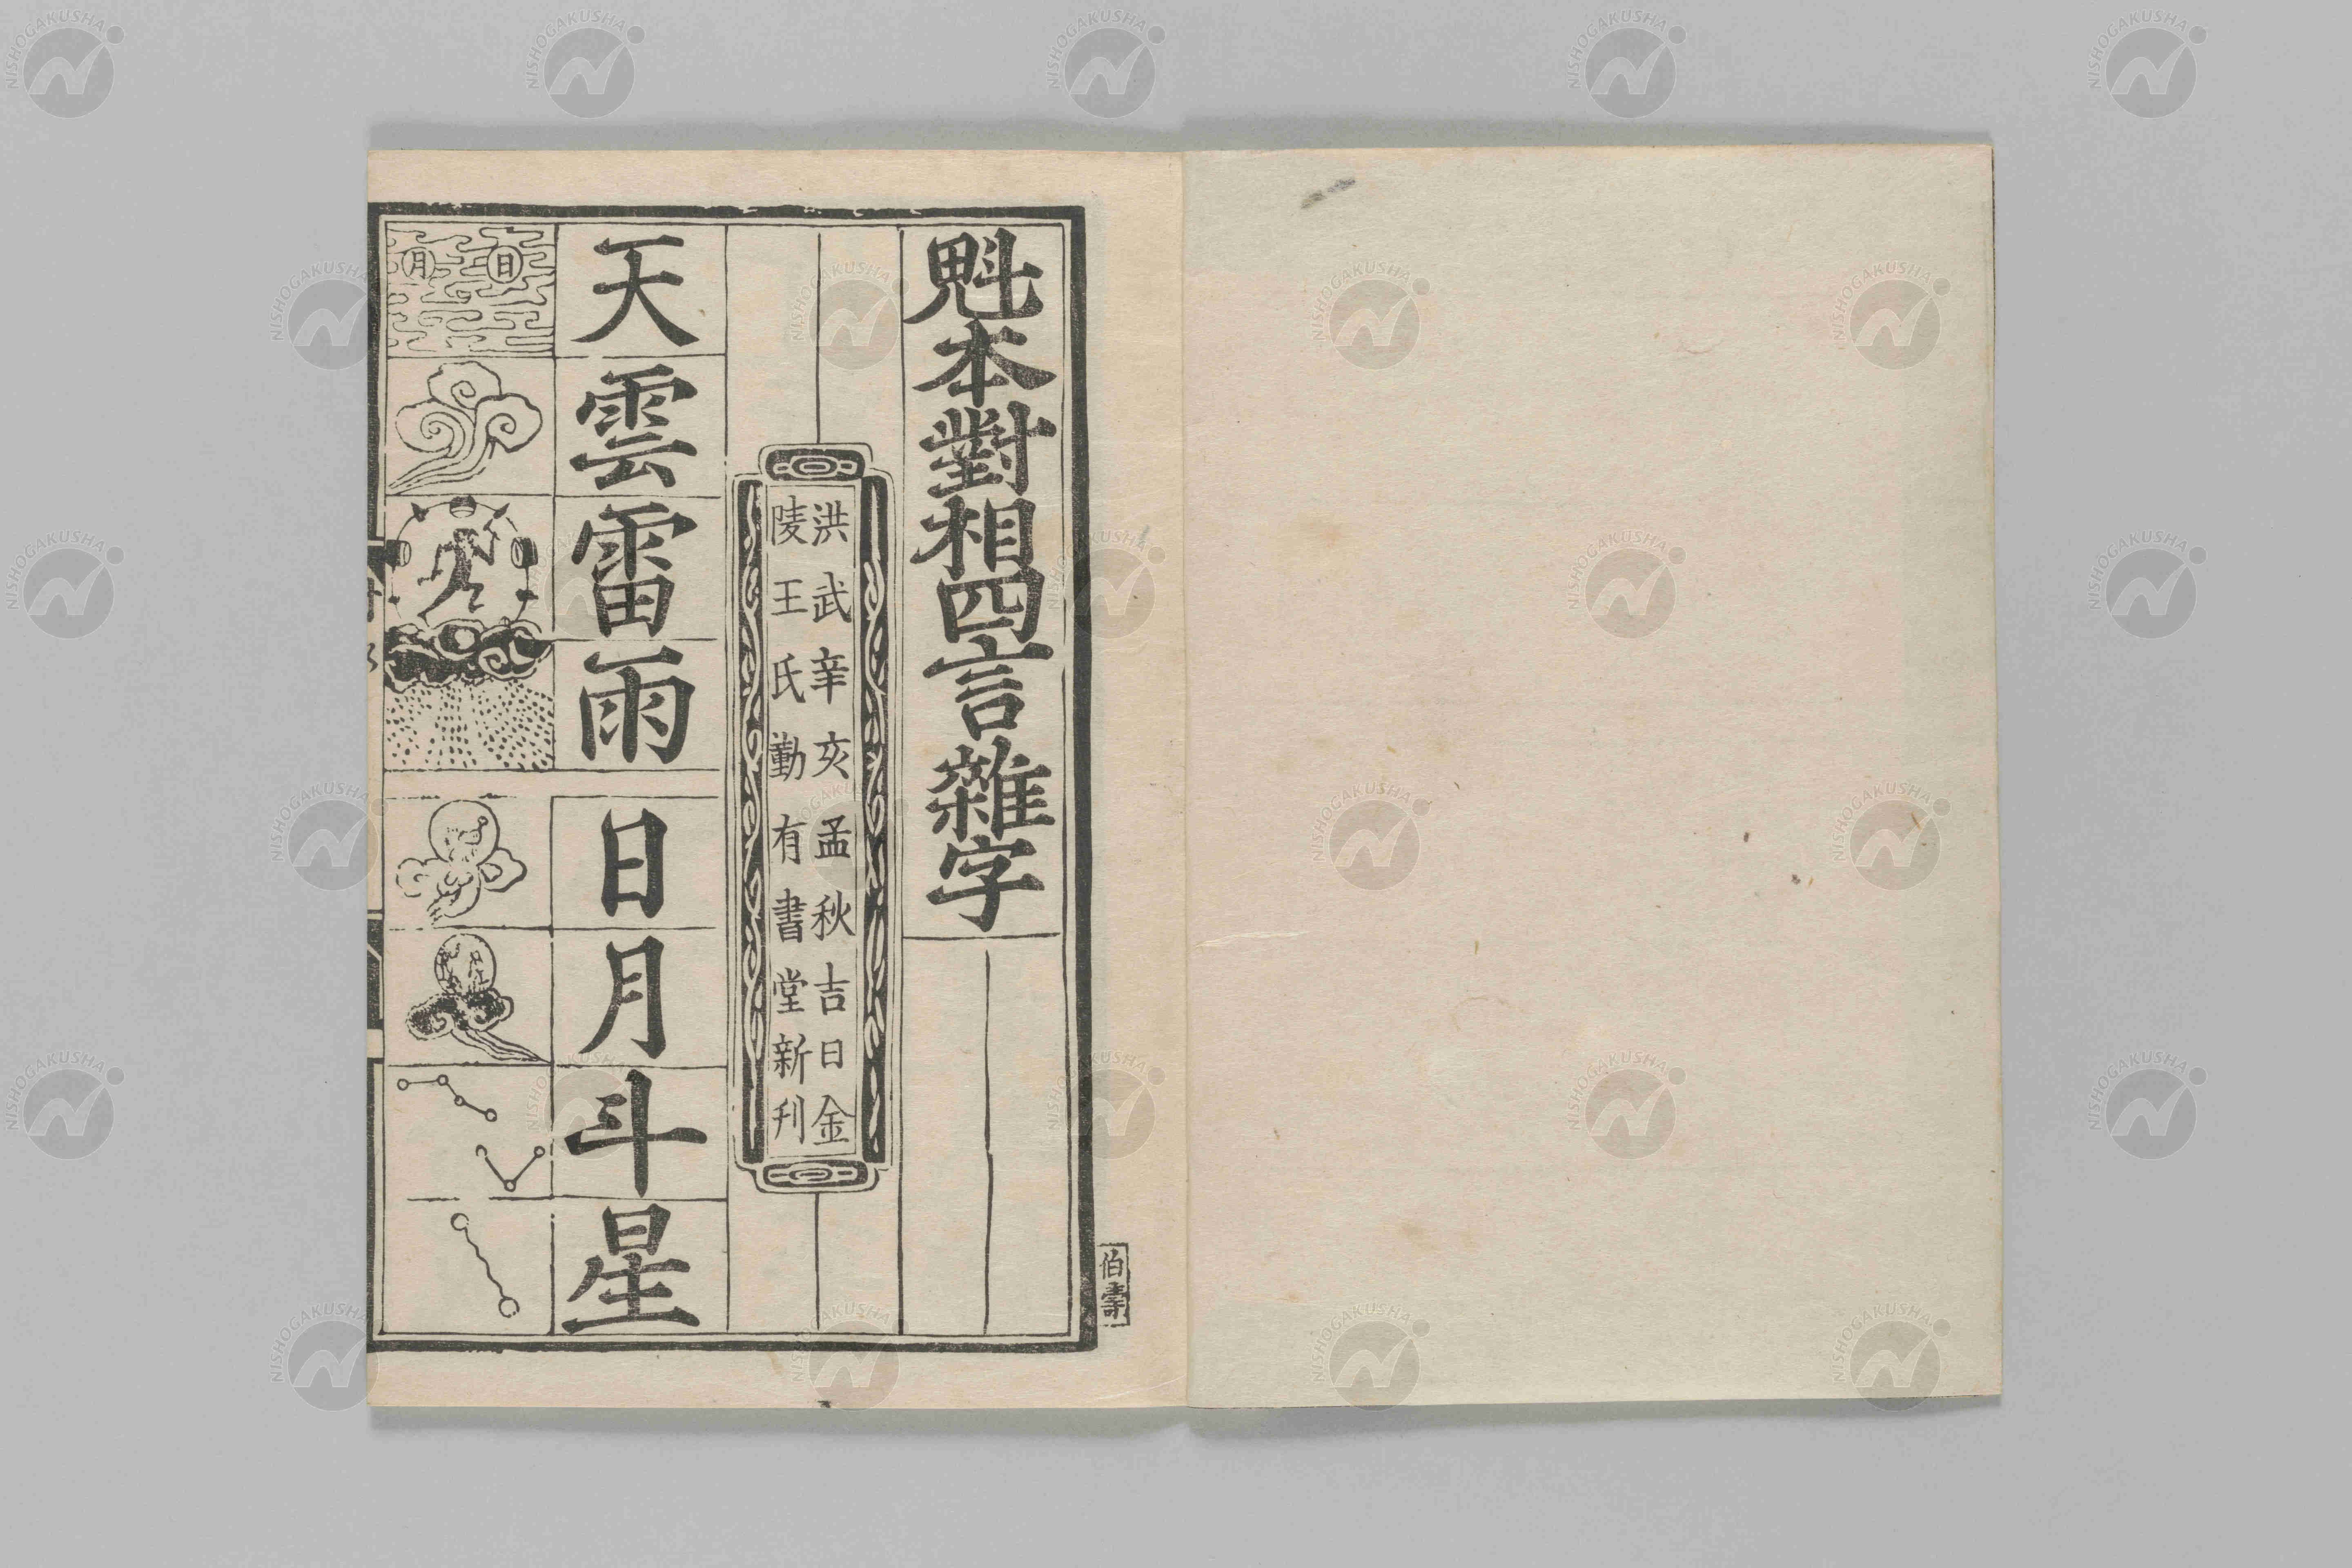 魁本對相四言雜字
洪武辛亥孟秋吉日金
陵王氏勤有書堂新刊
天雲雷雨 日月斗星
日
月
伯壽
NISHOGAKUSHA